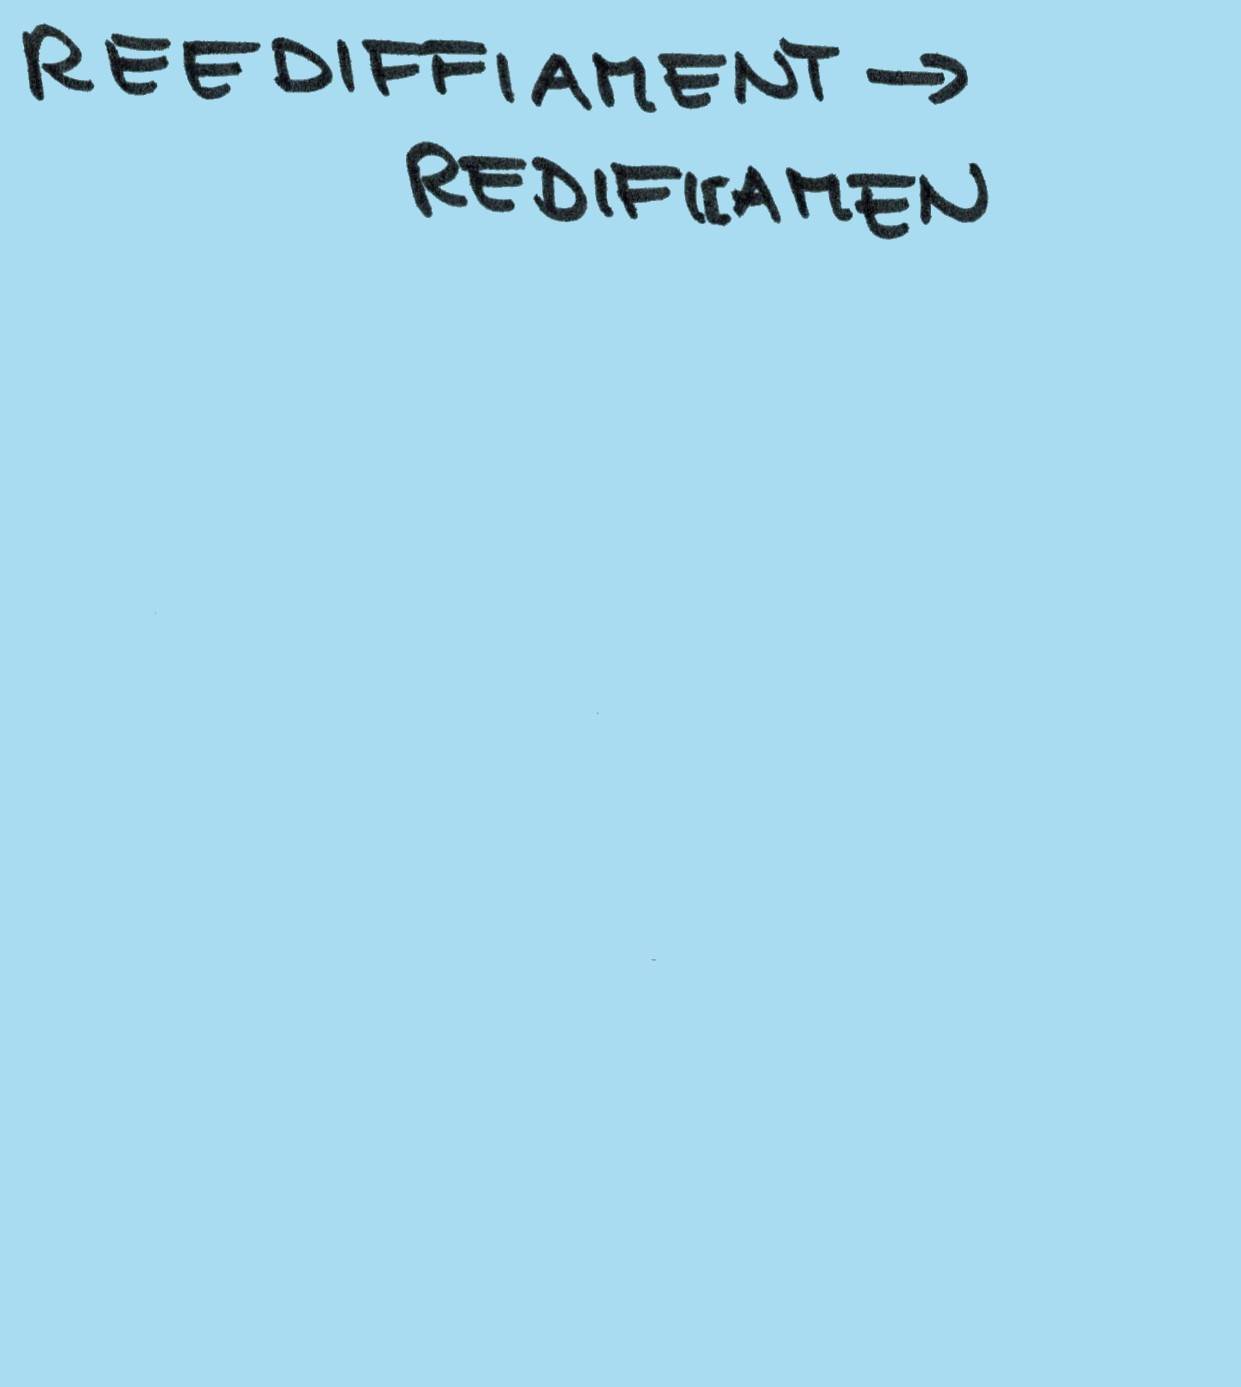 REEDIFFIAMENT →
REDIFICAMEN